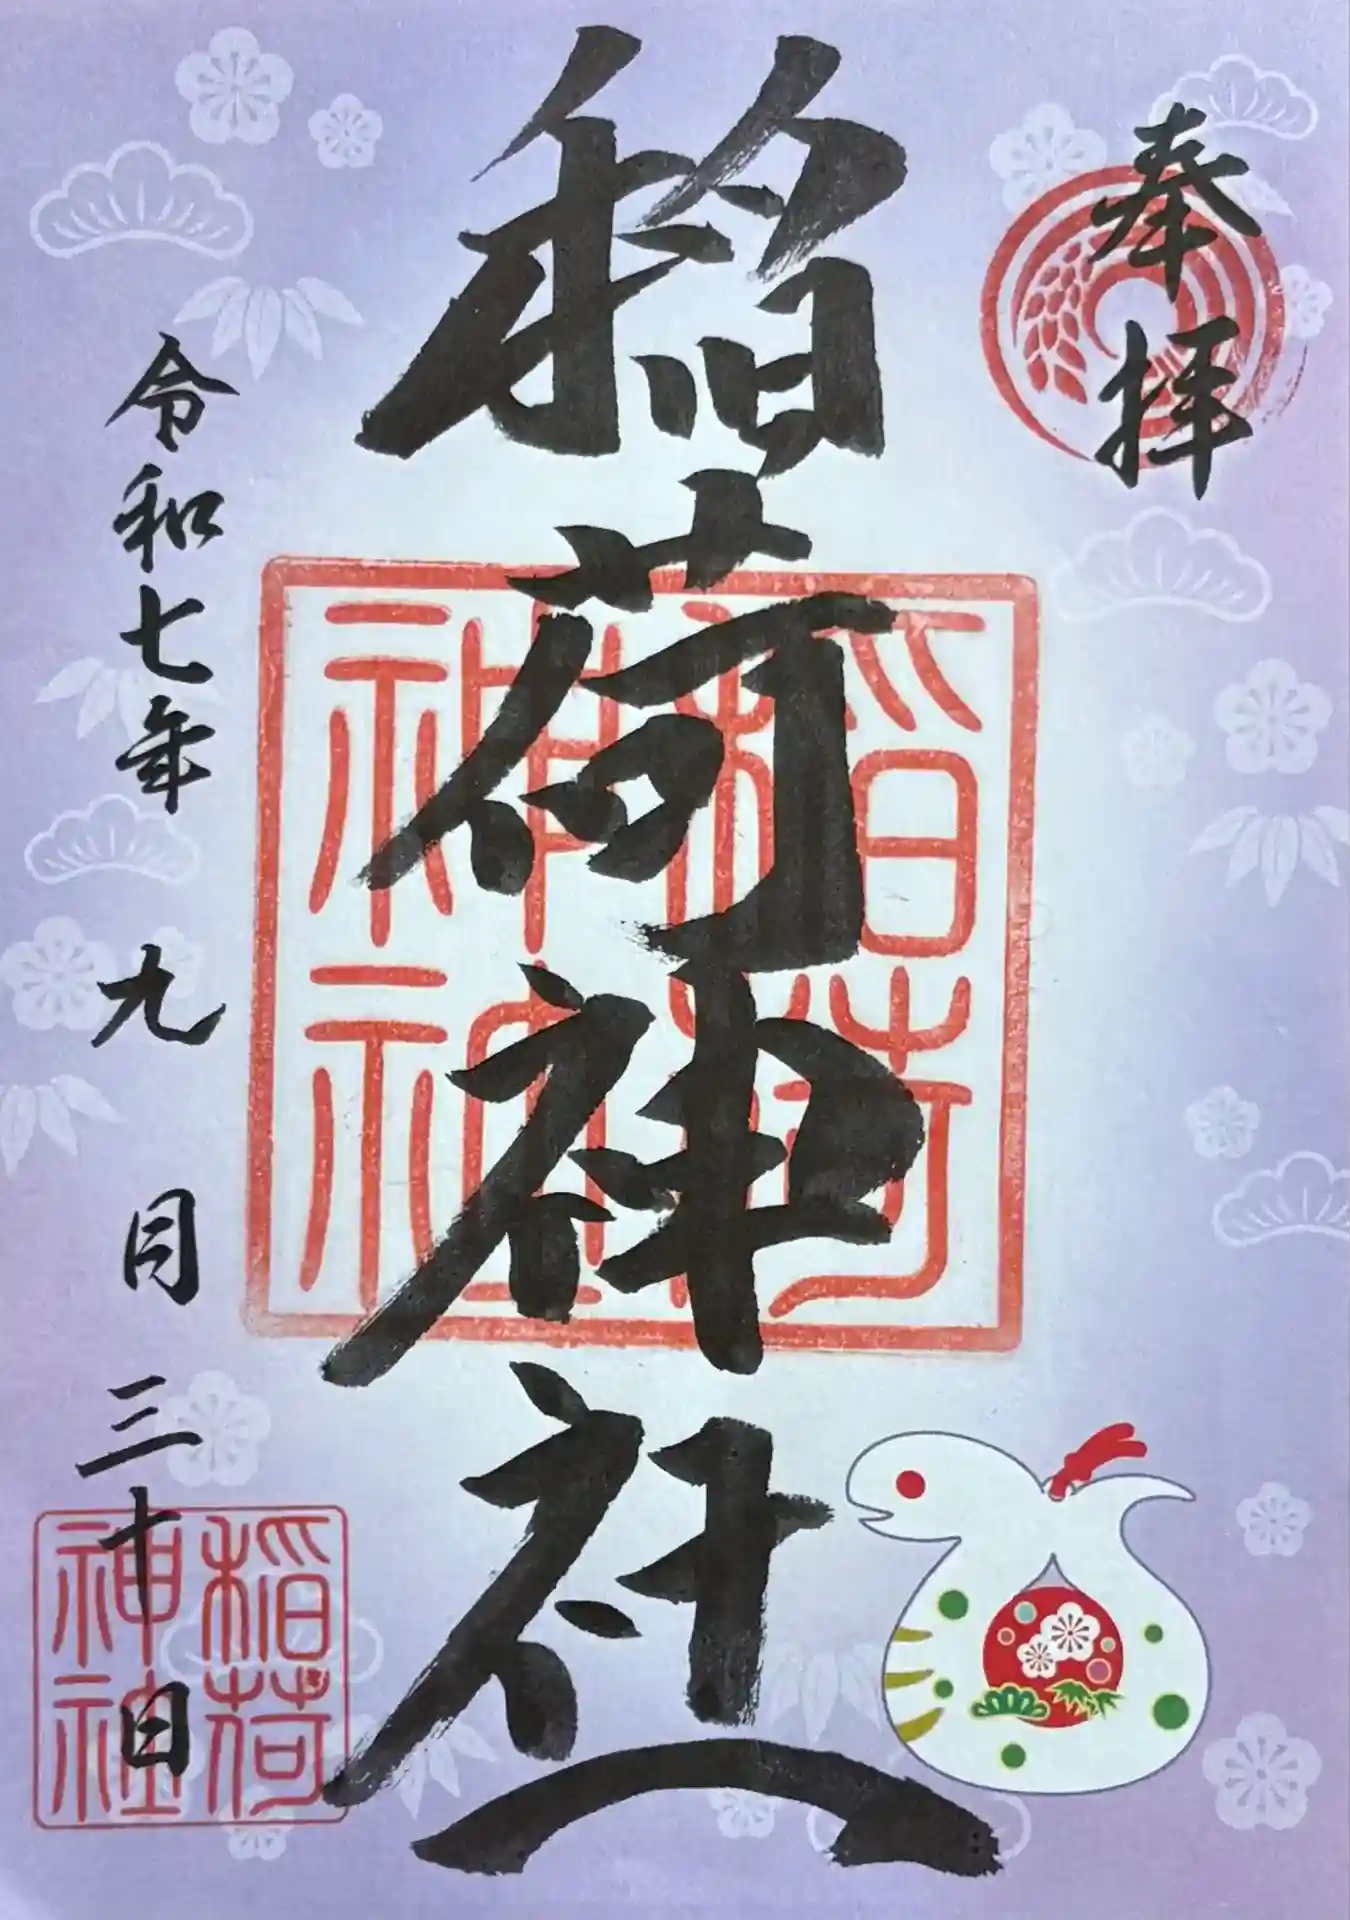 奉拝
稲荷神社
稲荷
神社
令和七年九月三十日
稲荷
神社